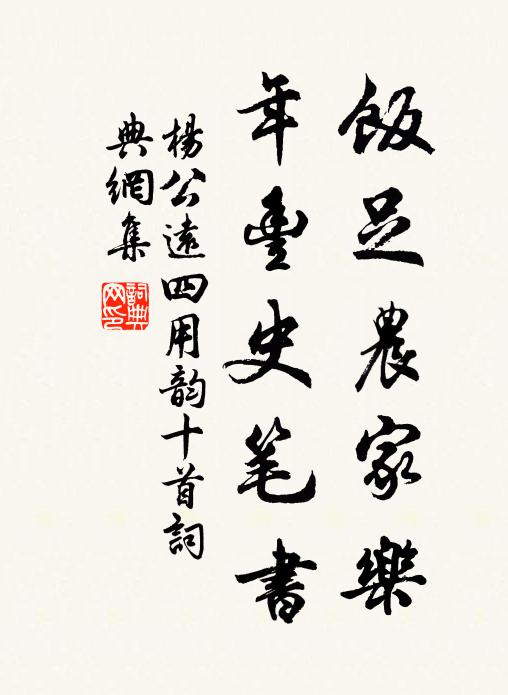 飯足農家樂
年豊史笔書
楊公遠四用韵十首詞
典網集
詞典
网印